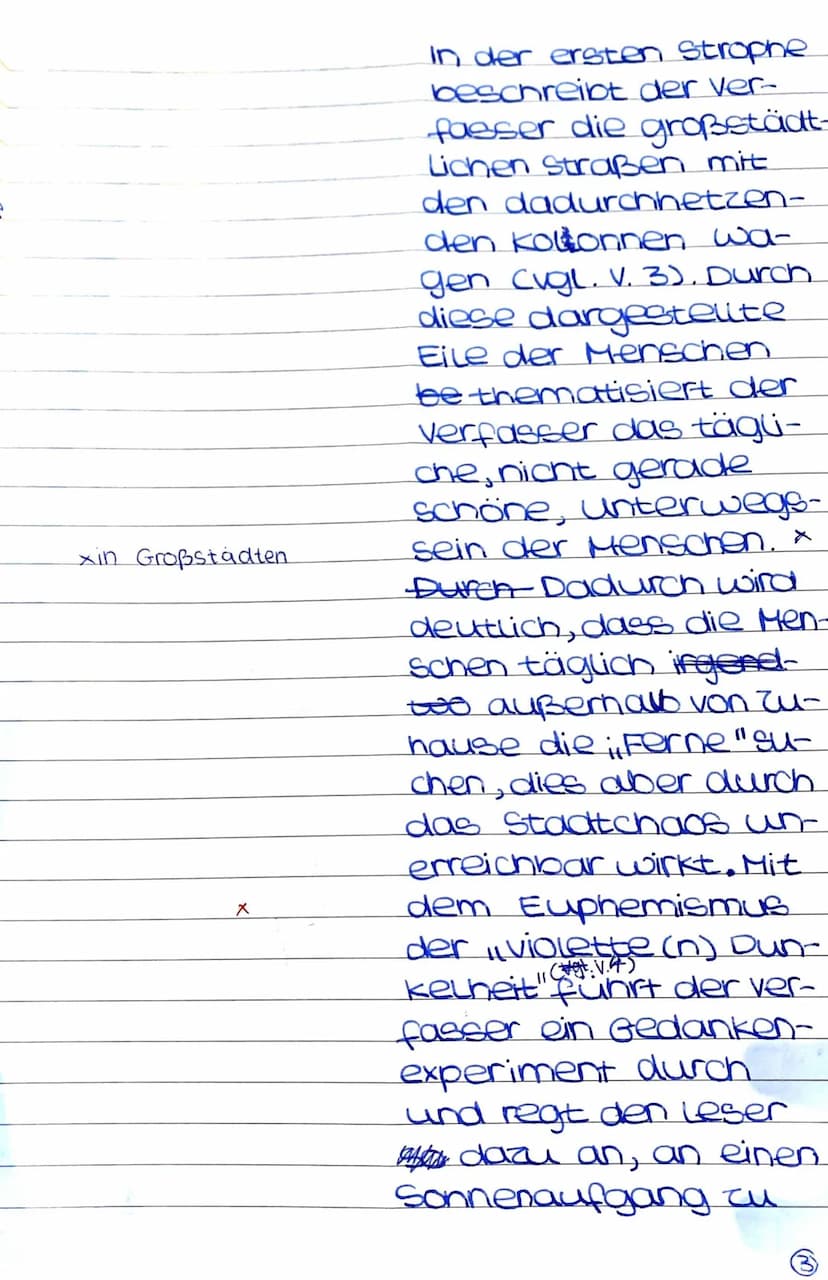 In der ersten Strophe
beschreibt der Ver-
fasser die großstädt-
lichen Straßen mit
den dadurchhetzen-
den Kolonnen Wa-
gen (vgl. V. 3). Durch
diese dargestellte
Eile der Menschen
be thematisiert der
Verfasser das tägli-
che, nicht gerade
schöne, Unterwegs-
sein der Menschen. x
xin Großstädten
Durch Dadurch wird
deutlich, dass die Men-
schen täglich irgend-
wo außerhalb von Zu-
hause die „Ferne" su-
chen, dies aber durch
das Stadtchaos un-
erreichbar wirkt. Mit
x
dem Euphemismus
der „violette(n) Dun-
kelheit" (vgl. V. 4) führt der Ver-
fasser ein Gedanken-
experiment durch
und regt den Leser
dazu an, an einen
Sonnenaufgang zu
3